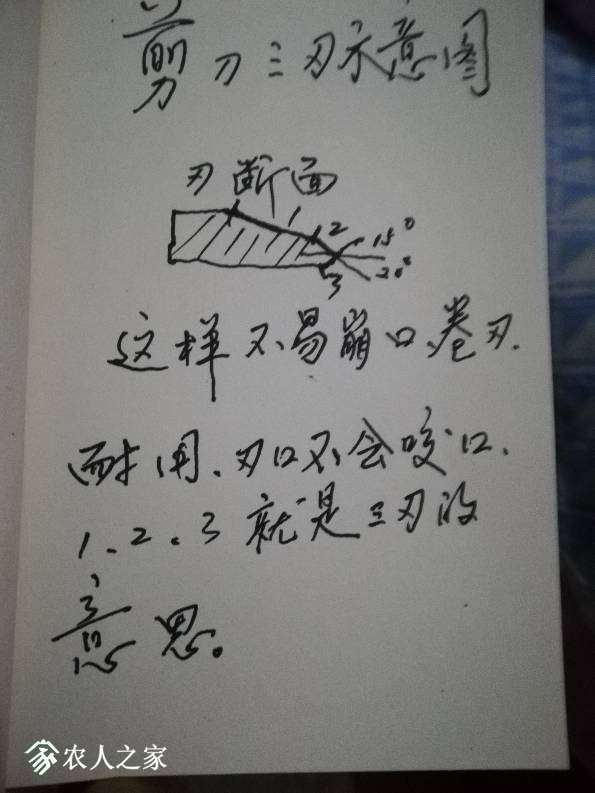 剪刀三刃示意图
刃断面
1
2
15°
20°
3
这样不易崩口、卷刃.
耐用、刃口不会咬口、
1、2、3就是三刃的
意思。
农人之家